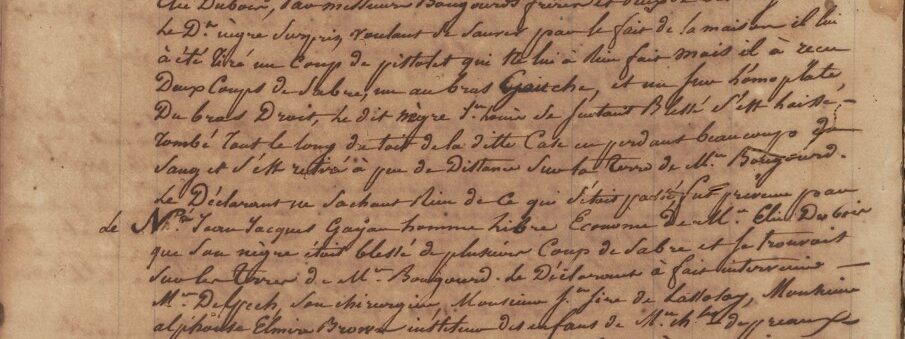 Elie Duboir, par messieur Bougourd frère et
Le D.n nègre surpris voulant se sauver par le fait de la maison il lui
à été tiré un Coup de pistolet qui ne lui à Rien fait mais il à recu
Deux Coups de Sabre, un au bras Gauche, et un sur l'homoplate
Du bras Droit, le dit nègre S.n louis se sentant Blessé s'est laissé,
tombé tout le long du toit de la ditte Case en perdant beaucoup de
Sang et s'est retiré à peu de Distance sur la terre de M.r Bougourd.
Le Déclarant ne Sachant Rien de Ce qui s'était passé fut prévenu par
de N.é Jean Jacques Gayan homme libre Econome de M.r Elie Duboir
que son nègre était blessé de plusieur Coup de Sabre et se trouvait
sur les terres de M.r Bougourd. le Déclarant à fait intervenir
M.r Delpech son chirurgien, Monsieur J.n fire de Lassalay, Monsieur
alphonse Elmire Brown instituteur des enfans de M.r ch. depreaux